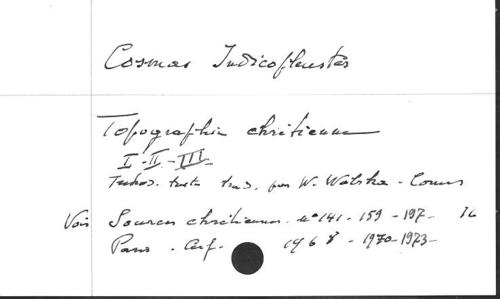 Cosmas Indicopleustès
Topographie chrétienne
I - II - III
Introd. texte trad. par W. Wolska - Conus
Voir Sources chrétiennes. n° 141 - 159 - 197 -
Paris - Cerf - 1968 - 1970 - 1973 -